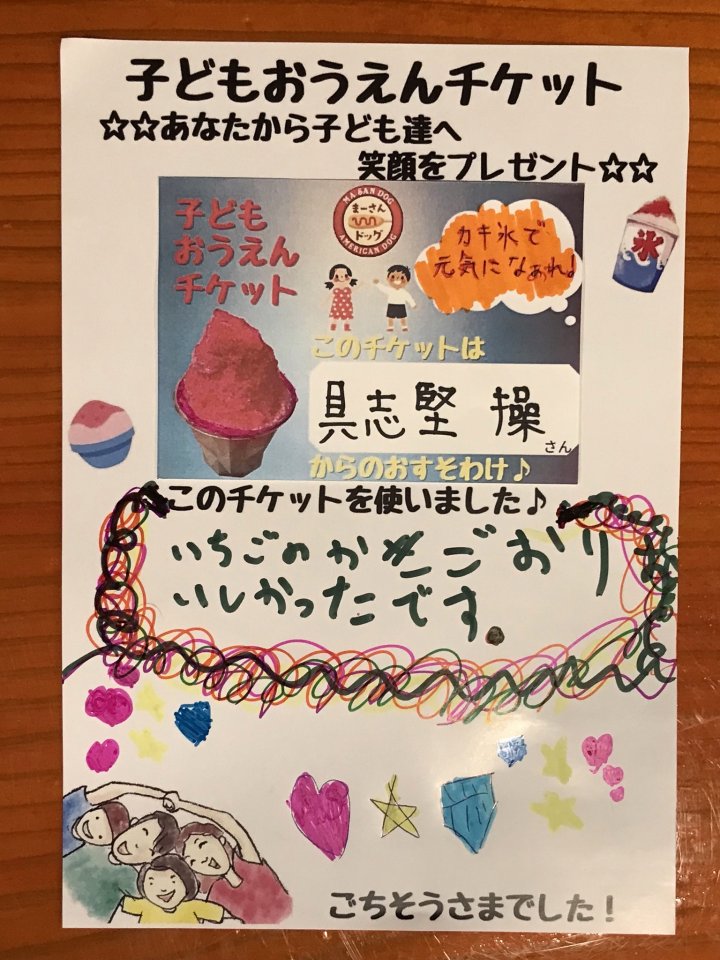 子どもおうえんチケット
☆☆あなたから子ども達へ
笑顔をプレゼント☆☆
子ども
おうえん
チケット
MA-SAN DOG
まーさん
ドッグ
AMERICAN DOG
カキ氷で
元気になぁれ!
氷
このチケットは
具志堅 操
さん
からのおすそわけ♪
このチケットを使いました♪
いちごのかきごおりお
いしかったです。
ごちそうさまでした!